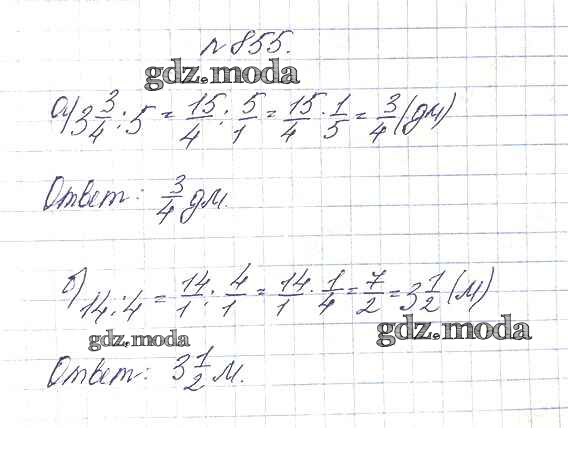 №855.
gdz.moda
а) 3 3/4 : 5 = 15/4 : 5/1 = 15/4 · 1/5 = 3/4 (дм)
Ответ: 3/4 дм.
б) 14 : 4 = 14/1 : 4/1 = 14/1 · 1/4 = 7/2 = 3 1/2 (м)
gdz.moda
gdz.moda
Ответ: 3 1/2 м.